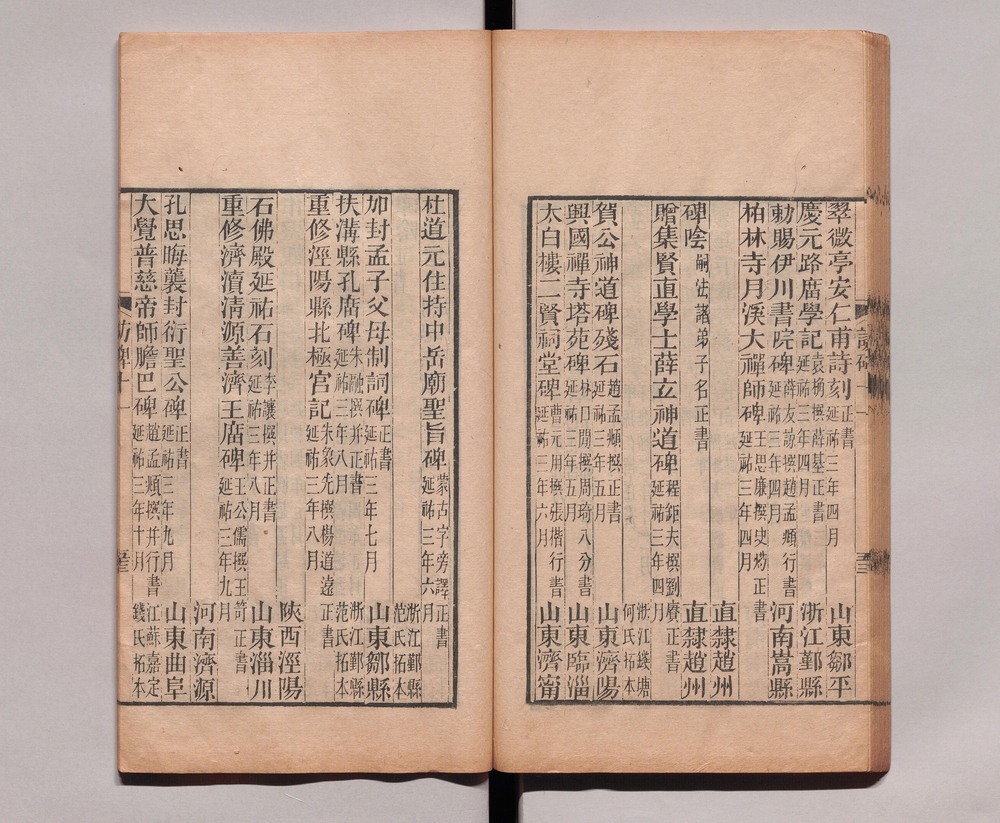 翠微亭安仁甫詩刻 正書 延祐三年四月 山東鄒平
慶元路廟學記 袁桷撰薛基正書 延祐三年四月 浙江鄞縣
勅賜伊川書院碑 薛友諒撰趙孟頫行書 延祐三年四月 河南嵩縣
柏林寺月溪大禪師碑 王思廉撰史 正書 延祐三年四月 直隸趙州
碑陰 嗣法諸弟子名正書 直隸趙州
贈集賢直學士薛玄神道碑 程鉅夫撰劉賡正書 延祐三年四月 浙江錢塘何氏拓本
賀公神道碑殘石 趙孟頫撰正書 延祐三年五月 山東濟陽
興國禪寺塔苑碑 林口間撰周琦八分書 延祐三年五月 山東臨淄
太白樓二賢祠堂碑 曹元用撰張楷行書 延祐三年六月 山東濟甯
杜道元住持中岳廟聖旨碑 蒙古字旁譯正書 延祐三年六月 浙江鄞縣范氏拓本
加封孟子父母制詞碑 正書 延祐三年七月 山東鄒縣
扶溝縣孔廟碑 朱融撰并正書 延祐三年八月 浙江鄞縣范氏拓本
重修涇陽縣北極宮記 朱象先撰楊道遠正書 延祐三年八月 陝西涇陽
石佛殿延祐石刻 李讓撰并正書 延祐三年八月 山東淄川
重修濟瀆清源善濟王廟碑 王公儒撰王笴正書 延祐三年九月 河南濟源
孔思晦襲封衍聖公碑 正書 延祐三年九月 山東曲阜
大覺普慈帝師膽巴碑 趙孟頫撰并行書 延祐三年十月 江蘇嘉定錢氏拓本
訪碑十一